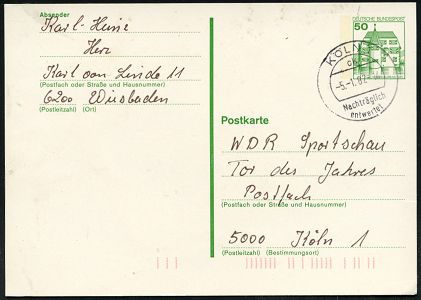 Absender
Karl-Heinz
Herz
Karl von Linde 11
(Postfach oder Straße und Hausnummer)
6200 Wiesbaden
(Postleitzahl) (Ort)
DEUTSCHE BUNDESPOST
50
KÖLN
-5.-1.87-
Nachträglich
entwertet
Postkarte
WDR Sportschau
Tor des Jahres
Postfach
(Postfach oder Straße und Hausnummer)
5000 Köln 1
(Postleitzahl) (Bestimmungsort)